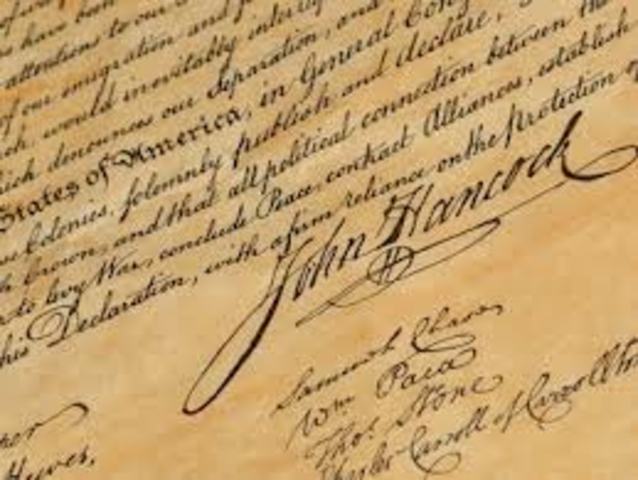 have been
attentions to our
of our emigration and
would inevitably
which denounces our Separation, and
States of America, in General
Colonies, solemnly publish and declare,
Crown, and that all political connection between the
to levy War, conclude Peace, contract Alliances, establish
this Declaration, with a firm reliance on the Protection of
John Hancock
Samuel Chase
Wm Paca
Thos Stone
Charles Carroll of Carrollton
Hewes,